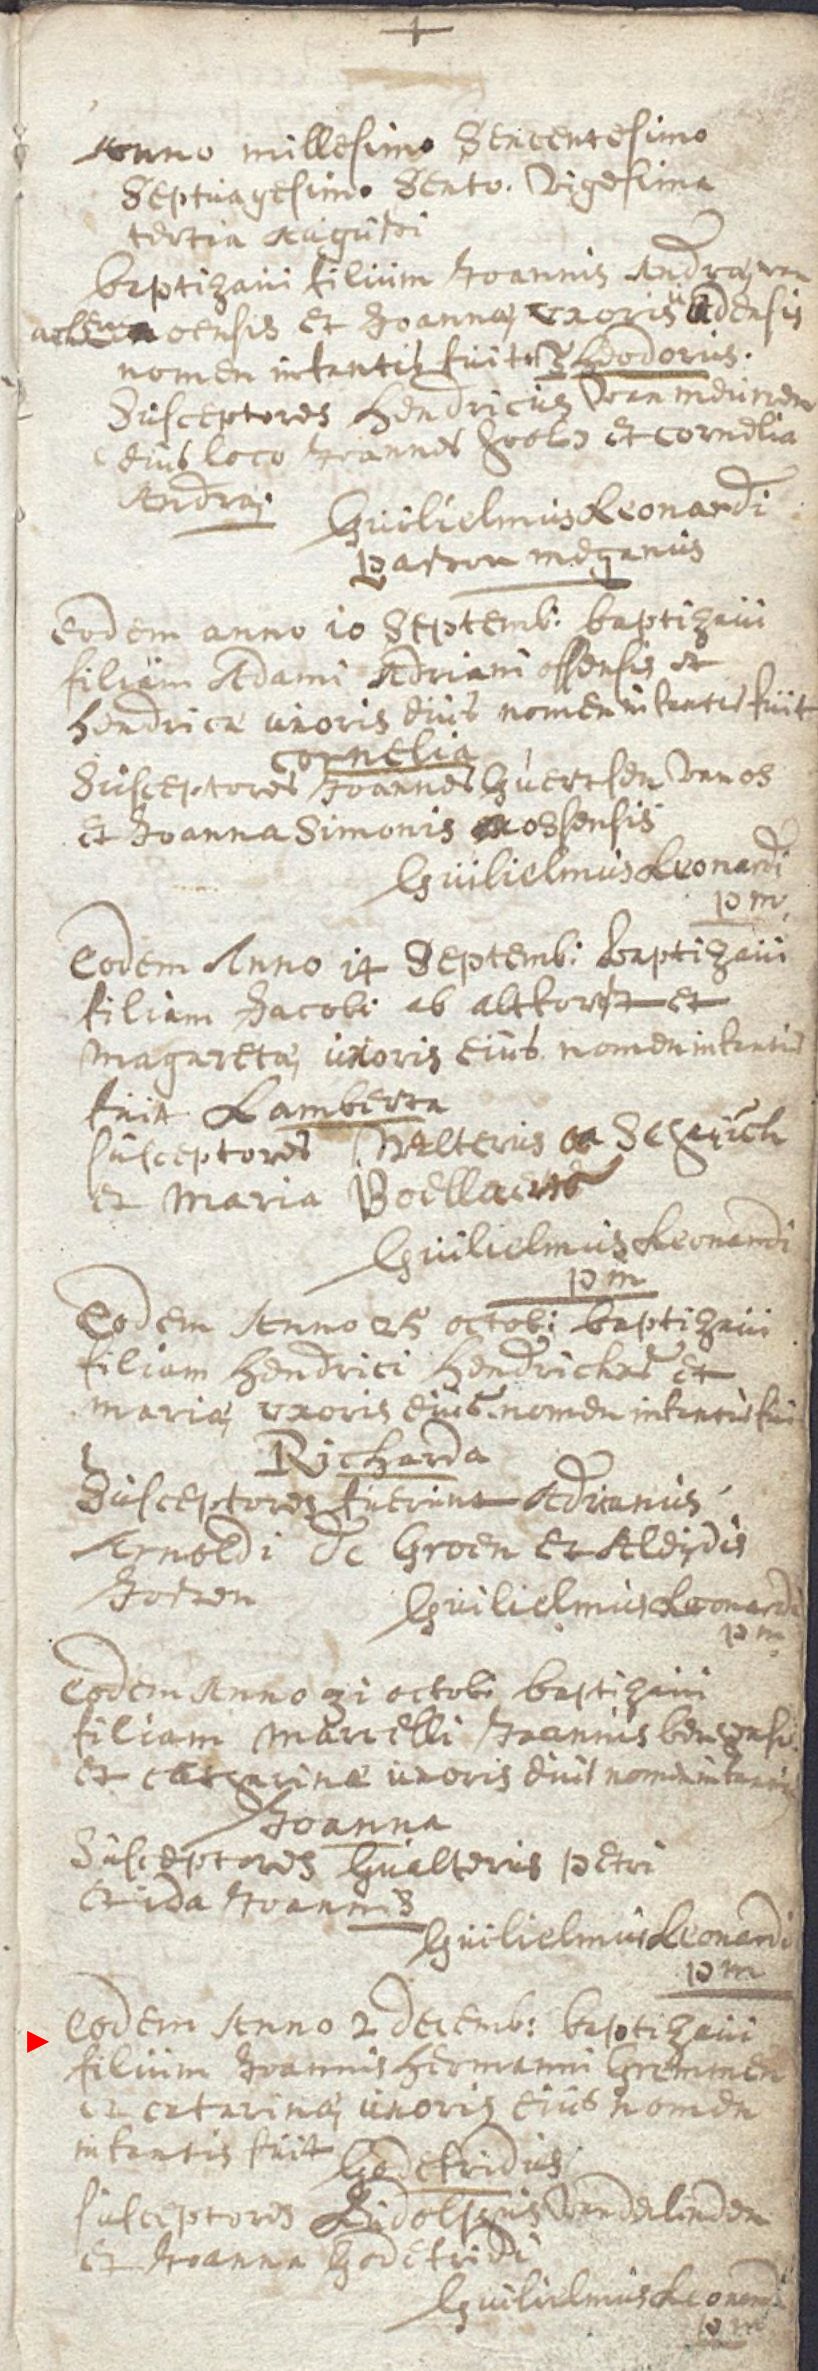 Anno millesimo Sexcentesimo
Septuagesimo Sexto. Vigesima
tertia Augusti
baptizavi filium Joannis Andreæ van
oensis et Joannæ uxoris udensis
nomen infantis fuit Theodorus.
Susceptores Hendricus van
eius loco Joannes et cornelia
Andreæ
Guilielmus Leonardi
pastor meganus
Eodem anno 10 Septemb: baptizavi
filiam Adami Adriani ossensis et
Hendricæ uxoris eius nomen infantis fuit
Cornelia
Susceptores Joannes Guertsen van os
et Joanna Simonis ossensis
Guilielmus Leonardi
p m
Eodem Anno 14 Septemb: baptizavi
filiam Jacobi ab altforst et
Magaretæ uxoris eius nomen infantis
fuit Lamberta
susceptores Walterus a
et Maria Boellaerts
Guilielmus Leonardi
p m
Eodem Anno 25 octob: baptizavi
filiam Hendrici Hendricks et
mariæ uxoris eius nomen infantis fuit
Richarda
Susceptores fuerunt Adrianus
Arnoldi de Groen et Aleidis
Guilielmus Leonardi
p m
Eodem Anno 31 octob: baptizavi
filiam Marcelli Joannis
et catarinæ uxoris eius nomen infantis
Joanna
Susceptores Gualterus petri
et ida Joannis
Guilielmus Leonardi
p m
Eodem Anno 2 decemb: baptizavi
filium Joannis Hermanni Gremmen
et catarinæ uxoris eius nomen
infantis fuit Godefridus
susceptores Rudolphus vanderlinden
et Joanna Godefridi
Guilielmus Leonardi
p m